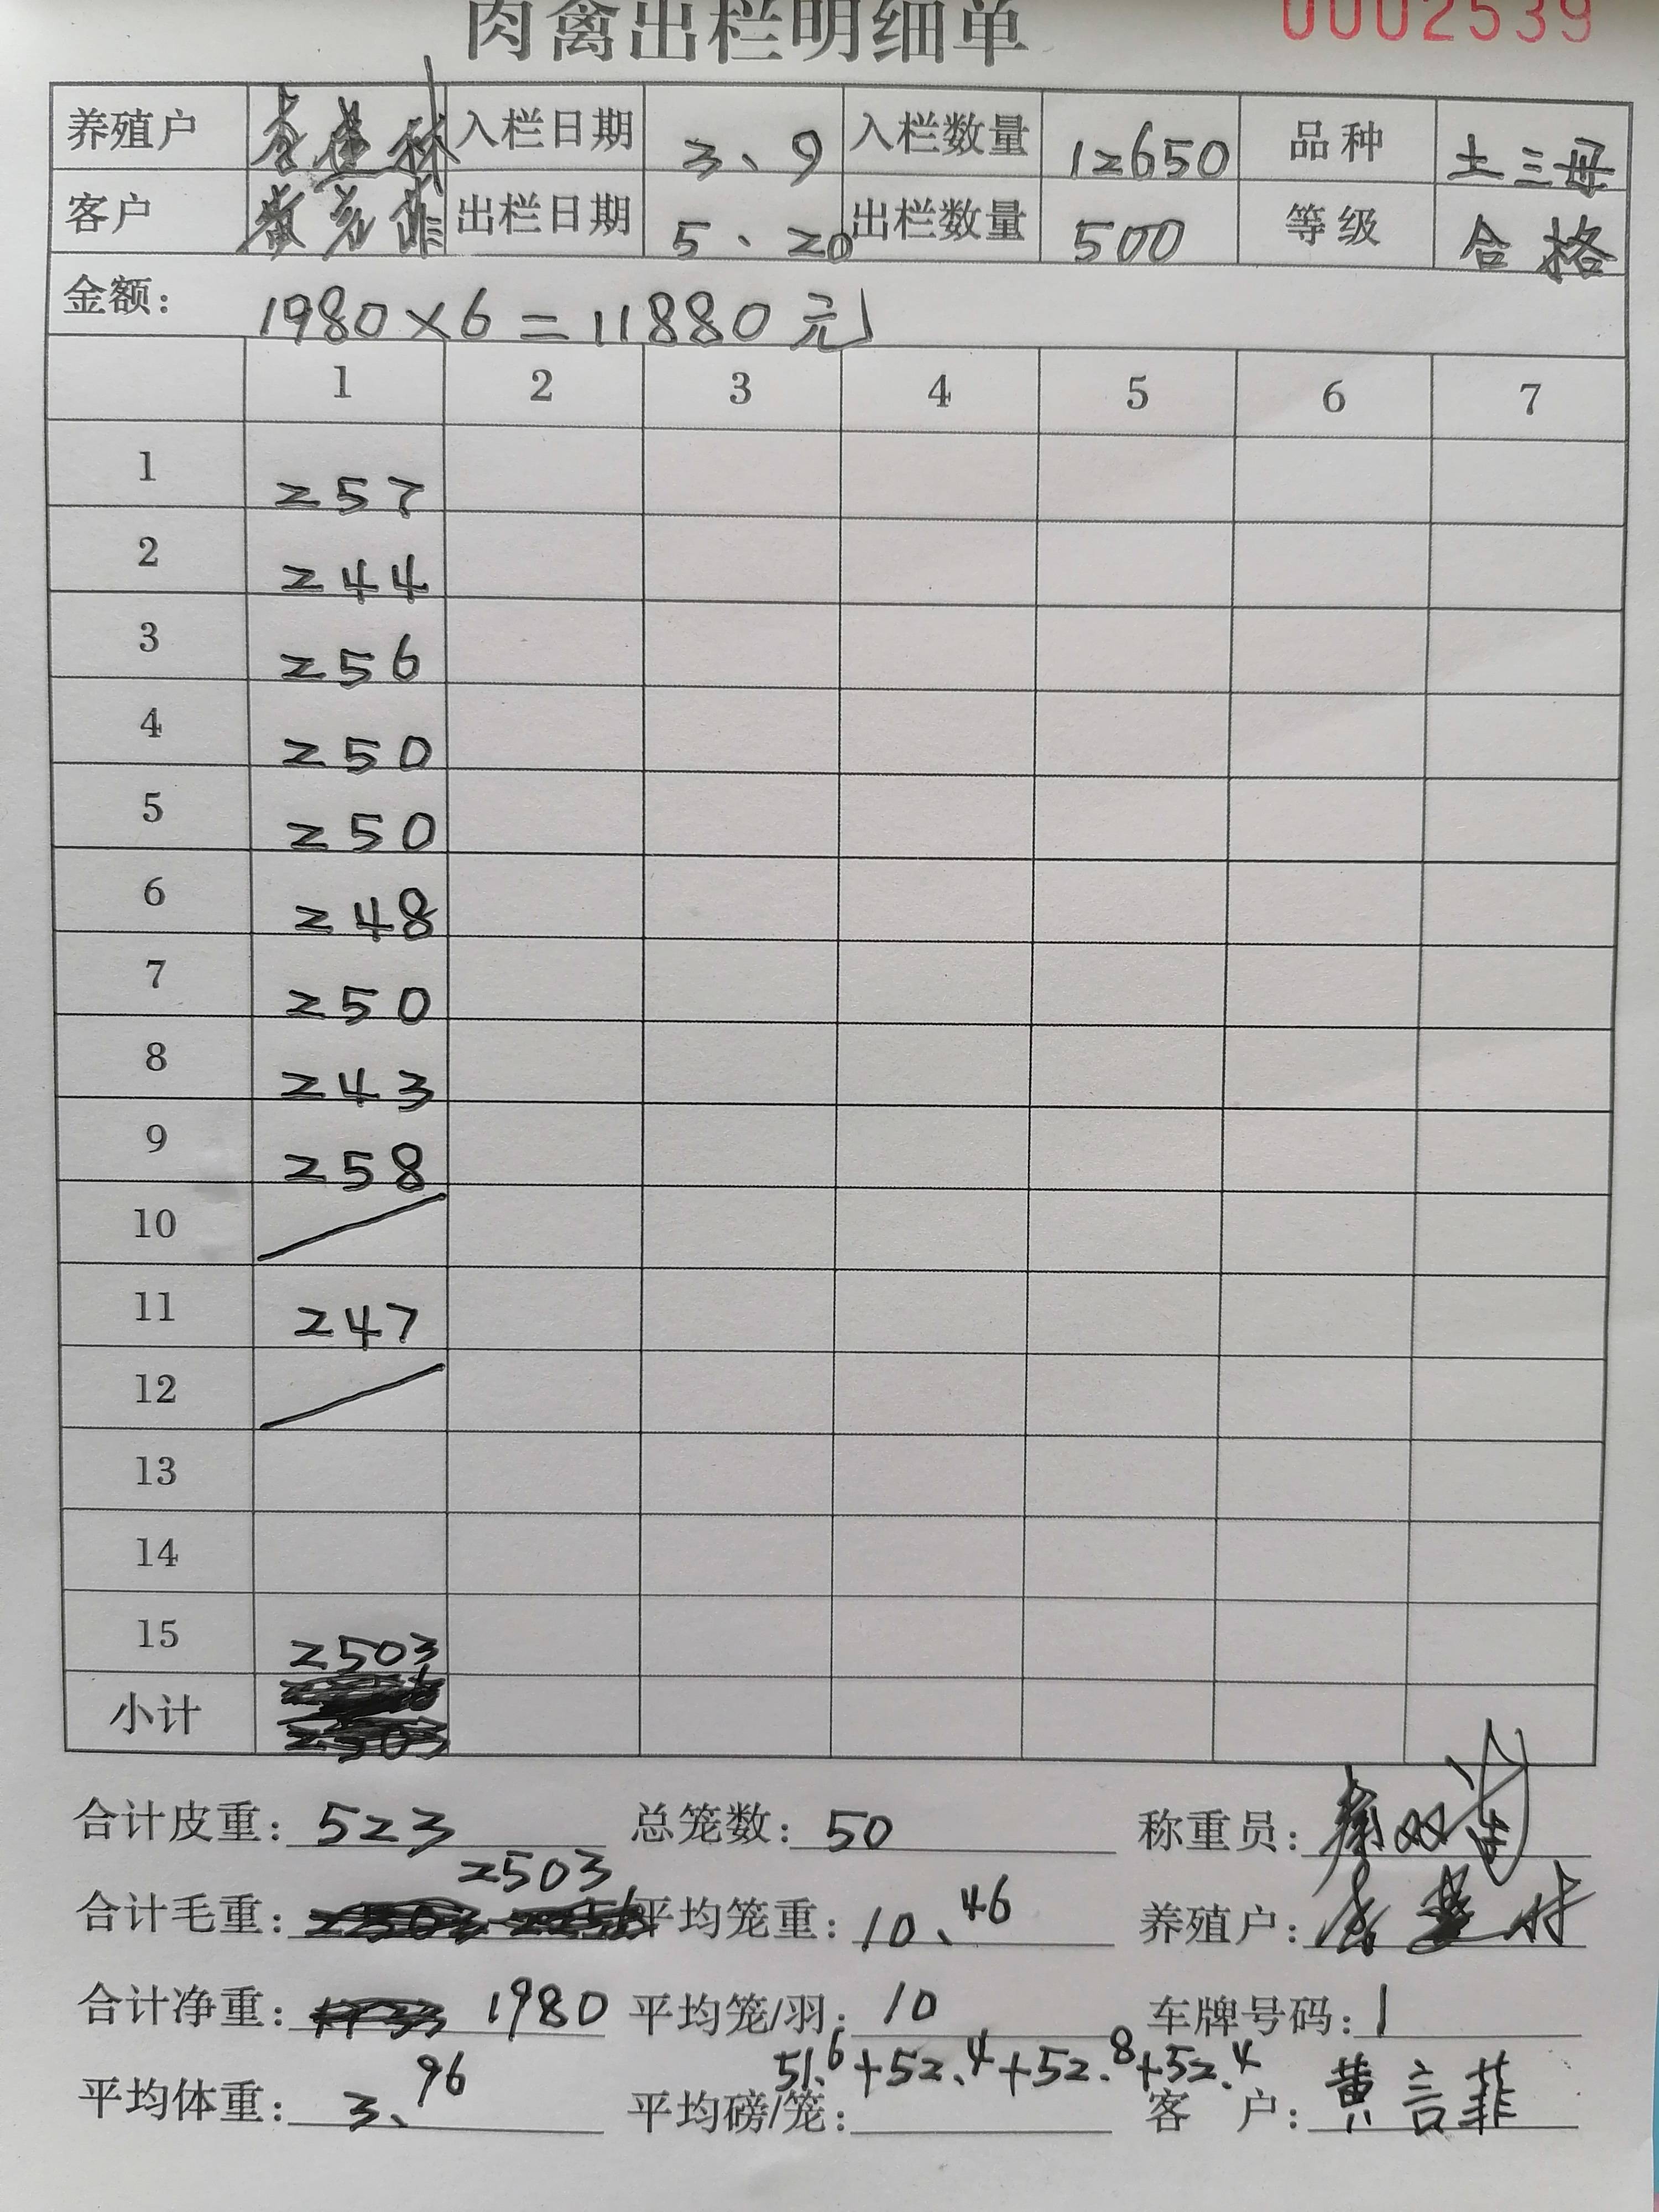 肉禽出栏明细单 0002539
养殖户 李建林 入栏日期 3、9 入栏数量 12650 品种 土三母
客户 黄言菲 出栏日期 5、20 出栏数量 500 等级 合格
金额: 1980×6=11880元
1 2 3 4 5 6 7
1 257
2 244
3 256
4 250
5 250
6 248
7 250
8 243
9 258
10
11 247
12
13
14
15 2503
小计 2503
合计皮重: 523 总笼数: 50 称重员:
2503
合计毛重: 平均笼重: 10、46 养殖户:
合计净重: 1980 平均笼/羽: 10 车牌号码: 1
51.6+52.4+52.8+52.4
平均体重: 3、96 平均磅/笼: 客户: 黄言菲